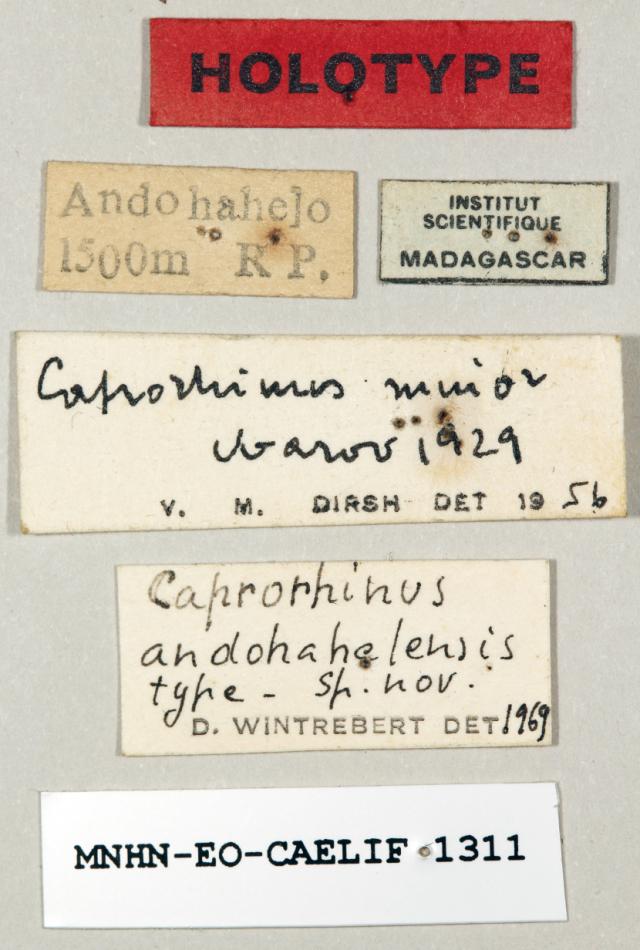 HOLOTYPE
Andohahelo
1500m R P.
INSTITUT
SCIENTIFIQUE
MADAGASCAR
Caprorhinus minor
Uvarov 1929
V. M. DIRSH DET 1956
Caprorhinus
andohahelensis
type - sp. nov.
D. WINTREBERT DET 1969
MNHN-EO-CAELIF 1311